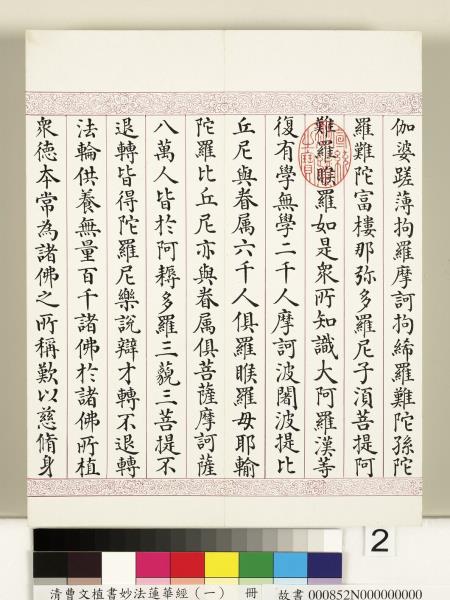 伽婆蹉薄拘羅摩訶拘絺羅難陀孫陀
羅難陀富樓那弥多羅尼子湏菩提阿
難羅睺羅如是衆所知識大阿羅漢等
復有學無學二千人摩訶波闍波提比
丘尼與眷属六千人俱羅睺羅母耶輸
陀羅比丘尼亦與眷属俱菩薩摩訶薩
八萬人皆於阿耨多羅三藐三菩提不
退轉皆得陀羅尼樂說辯才轉不退轉
法輪供養無量百千諸佛於諸佛所植
衆德本常為諸佛之所稱歎以慈脩身
2
清曹文植書妙法蓮華經(一) 冊 故書 000852N000000000